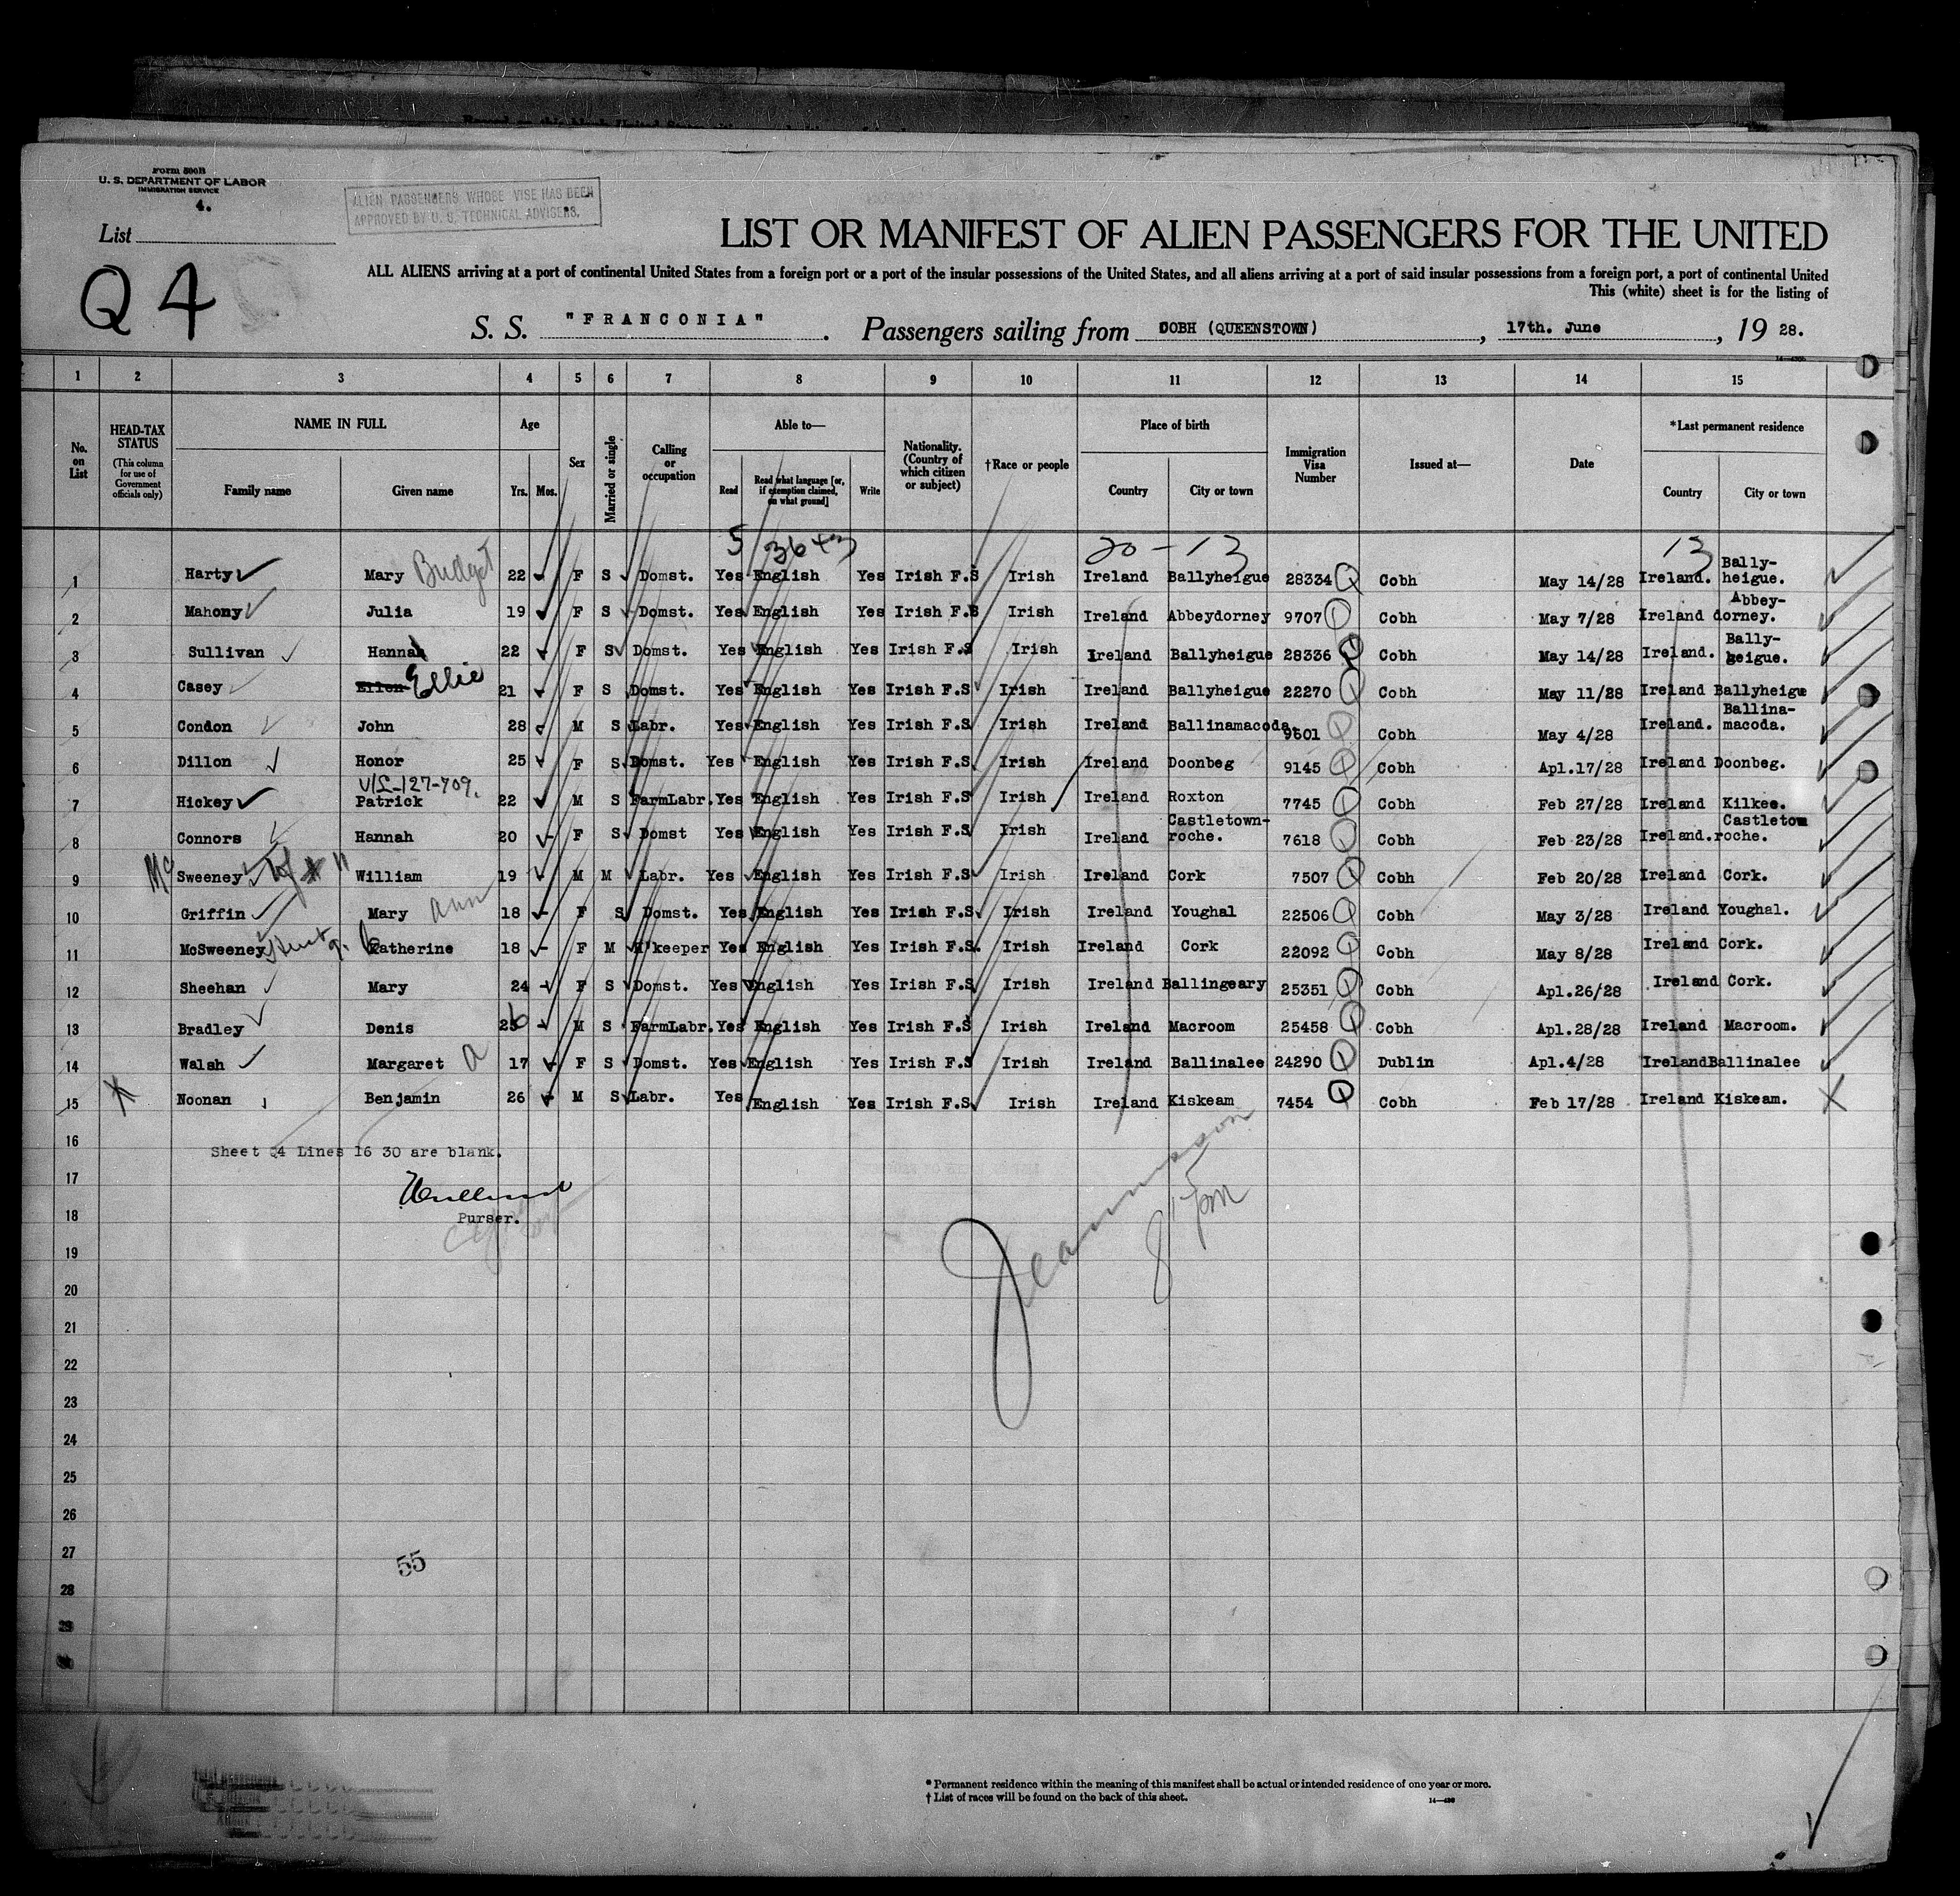 Form 500B
U. S. DEPARTMENT OF LABOR
IMMIGRATION SERVICE
4.
ALIEN PASSENGERS WHOSE VISE HAS BEEN
APPROVED BY U. S. TECHNICAL ADVISERS.
List
Q 4
LIST OR MANIFEST OF ALIEN PASSENGERS FOR THE UNITED
ALL ALIENS arriving at a port of continental United States from a foreign port or a port of the insular possessions of the United States, and all aliens arriving at a port of said insular possessions from a foreign port, a port of continental United
This (white) sheet is for the listing of
S. S. "FRANCONIA". Passengers sailing from COBH (QUEENSTOWN), 17th. June, 19 28.
1 2 3 4 5 6 7 8 9 10 11 12 13 14 15
No. on List
HEAD-TAX STATUS (This column for use of Government officials only)
NAME IN FULL Family name Given name
Age Yrs. Mos.
Sex
Married or single
Calling or occupation
Able to— Read Read what language [or, if exemption claimed, on what ground] Write
Nationality. (Country of which citizen or subject)
†Race or people
Place of birth Country City or town
Immigration Visa Number
Issued at—
Date
*Last permanent residence Country City or town
5 3643 20-13 13
1 Harty Mary Bridget 22 F S Domst. Yes English Yes Irish F.S Irish Ireland Ballyheigue 28334 Q Cobh May 14/28 Ireland. Bally-heigue.
2 Mahony Julia 19 F S Domst. Yes English Yes Irish F.S Irish Ireland Abbeydorney 9707 Cobh May 7/28 Ireland Abbey-dorney.
3 Sullivan Hannah 22 F S Domst. Yes English Yes Irish F.S Irish Ireland Ballyheigue 28336 Q Cobh May 14/28 Ireland. Bally-heigue.
4 Casey Ellen Ellie 21 F S Domst. Yes English Yes Irish F.S Irish Ireland Ballyheigue 22270 Q Cobh May 11/28 Ireland Ballyheigue
5 Condon John 28 M S Labr. Yes English Yes Irish F.S Irish Ireland Ballinamacoda. 9601 Q Cobh May 4/28 Ireland. Ballina-macoda.
6 Dillon Honor 25 F S Domst. Yes English Yes Irish F.S. Irish Ireland Doonbeg 9145 Q Cobh Apl.17/28 Ireland Doonbeg.
V/L-127-709.
7 Hickey Patrick 22 M S FarmLabr. Yes English Yes Irish F.S Irish Ireland Roxton 7745 Q Cobh Feb 27/28 Ireland Kilkee.
8 Connors Hannah 20 F S Domst Yes English Yes Irish F.S Irish Ireland Castletown-roche. 7618 Q Cobh Feb 23/28 Ireland. Castletow roche.
9 Mc Sweeney # 11 William 19 M M Labr. Yes English Yes Irish F.S Irish Ireland Cork 7507 Q Cobh Feb 20/28 Ireland Cork.
10 Griffin Mary Ann 18 F S Domst. Yes English Yes Irish F.S Irish Ireland Youghal 22506 Q Cobh May 3/28 Ireland Youghal.
11 McSweeney Katherine 18 F M H'keeper Yes English Yes Irish F.S. Irish Ireland Cork 22092 Q Cobh May 8/28 Ireland Cork.
12 Sheehan Mary 24 F S Domst. Yes English Yes Irish F.S Irish Ireland Ballingeary 25351 Q Cobh Apl.26/28 Ireland Cork.
13 Bradley Denis 26 M S FarmLabr. Yes English Yes Irish F.S Irish Ireland Macroom 25458 Q Cobh Apl.28/28 Ireland Macroom.
14 Walsh Margaret A 17 F S Domst. Yes English Yes Irish F.S Irish Ireland Ballinalee 24290 Q Dublin Apl.4/28 Ireland Ballinalee
15 Noonan Benjamin 26 M S Labr. Yes English Yes Irish F.S. Irish Ireland Kiskeam 7454 Q Cobh Feb 17/28 Ireland Kiskeam.
16
Sheet Q4 Lines 16 30 are blank.
17
18 Purser.
19
20
21
22
23
24
25
26
27
28
29
55
815pm
* Permanent residence within the meaning of this manifest shall be actual or intended residence of one year or more.
† List of races will be found on the back of this sheet.